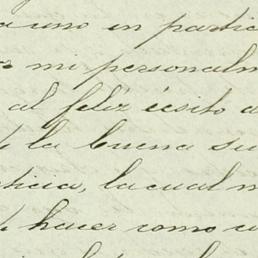 a uno en partic
mi personalm
al feliz écsito d
la buena su
ticia, la cual m
hacer como u